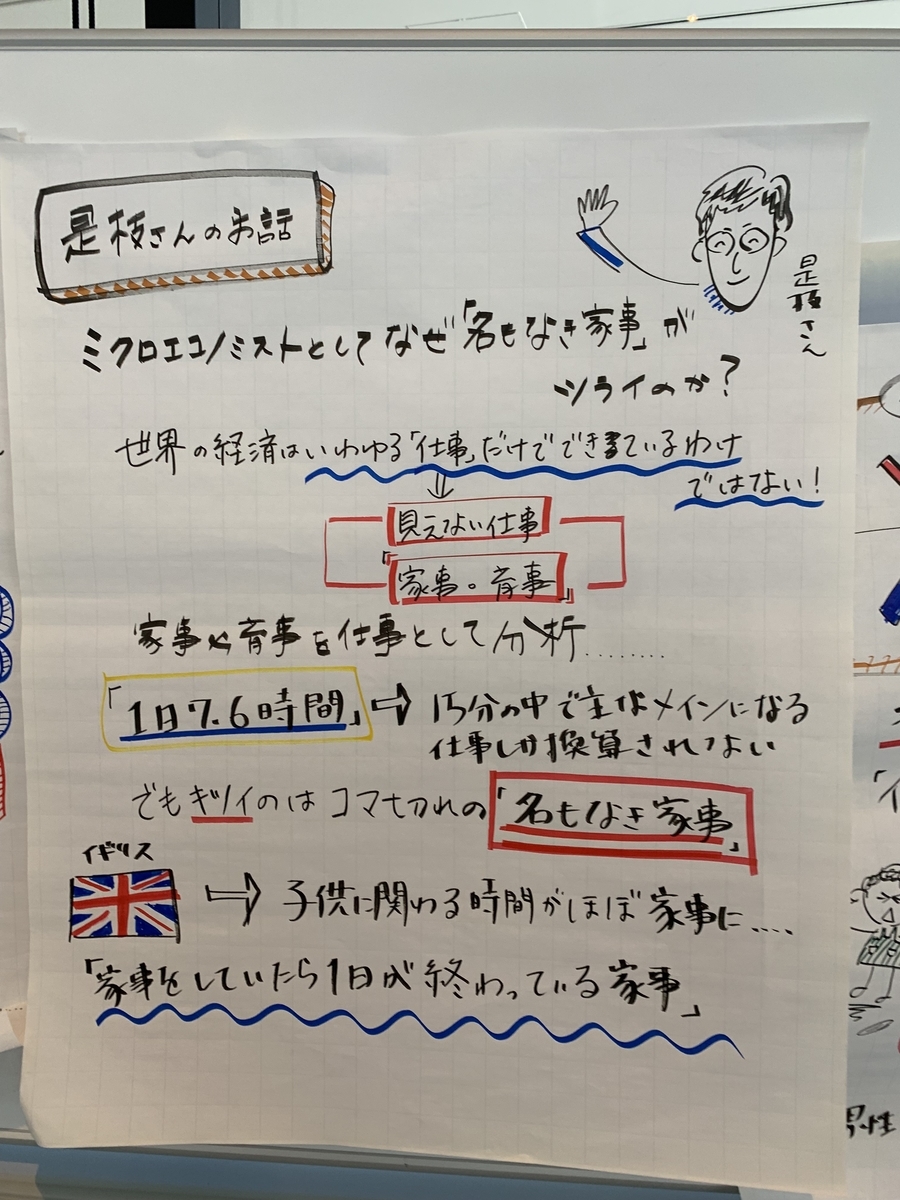 是枝さんのお話
是枝さん
ミクロエコノミストとしてなぜ「名もなき家事」が
ツライのか?
世界の経済はいわゆる「仕事」だけでできているわけ
ではない!
見えない仕事
「家事・育事」
家事や育事を仕事として分析........
「1日7.6時間」⇨ 15分の中で主なメインになる
仕事しか換算されてない
でもキツイのはコマ切れの「名もなき家事」
イギリス
⇨ 子供に関わる時間がほぼ家事に....
「家事をしていたら1日が終わっている家事」
男性